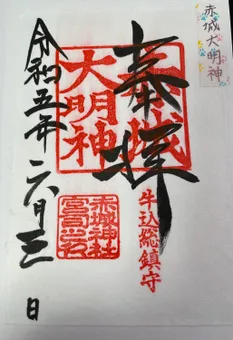 赤城大明神
奉拝
赤城
大明神
牛込総鎮守
赤城神社
宮司之印
令和五年六月三日